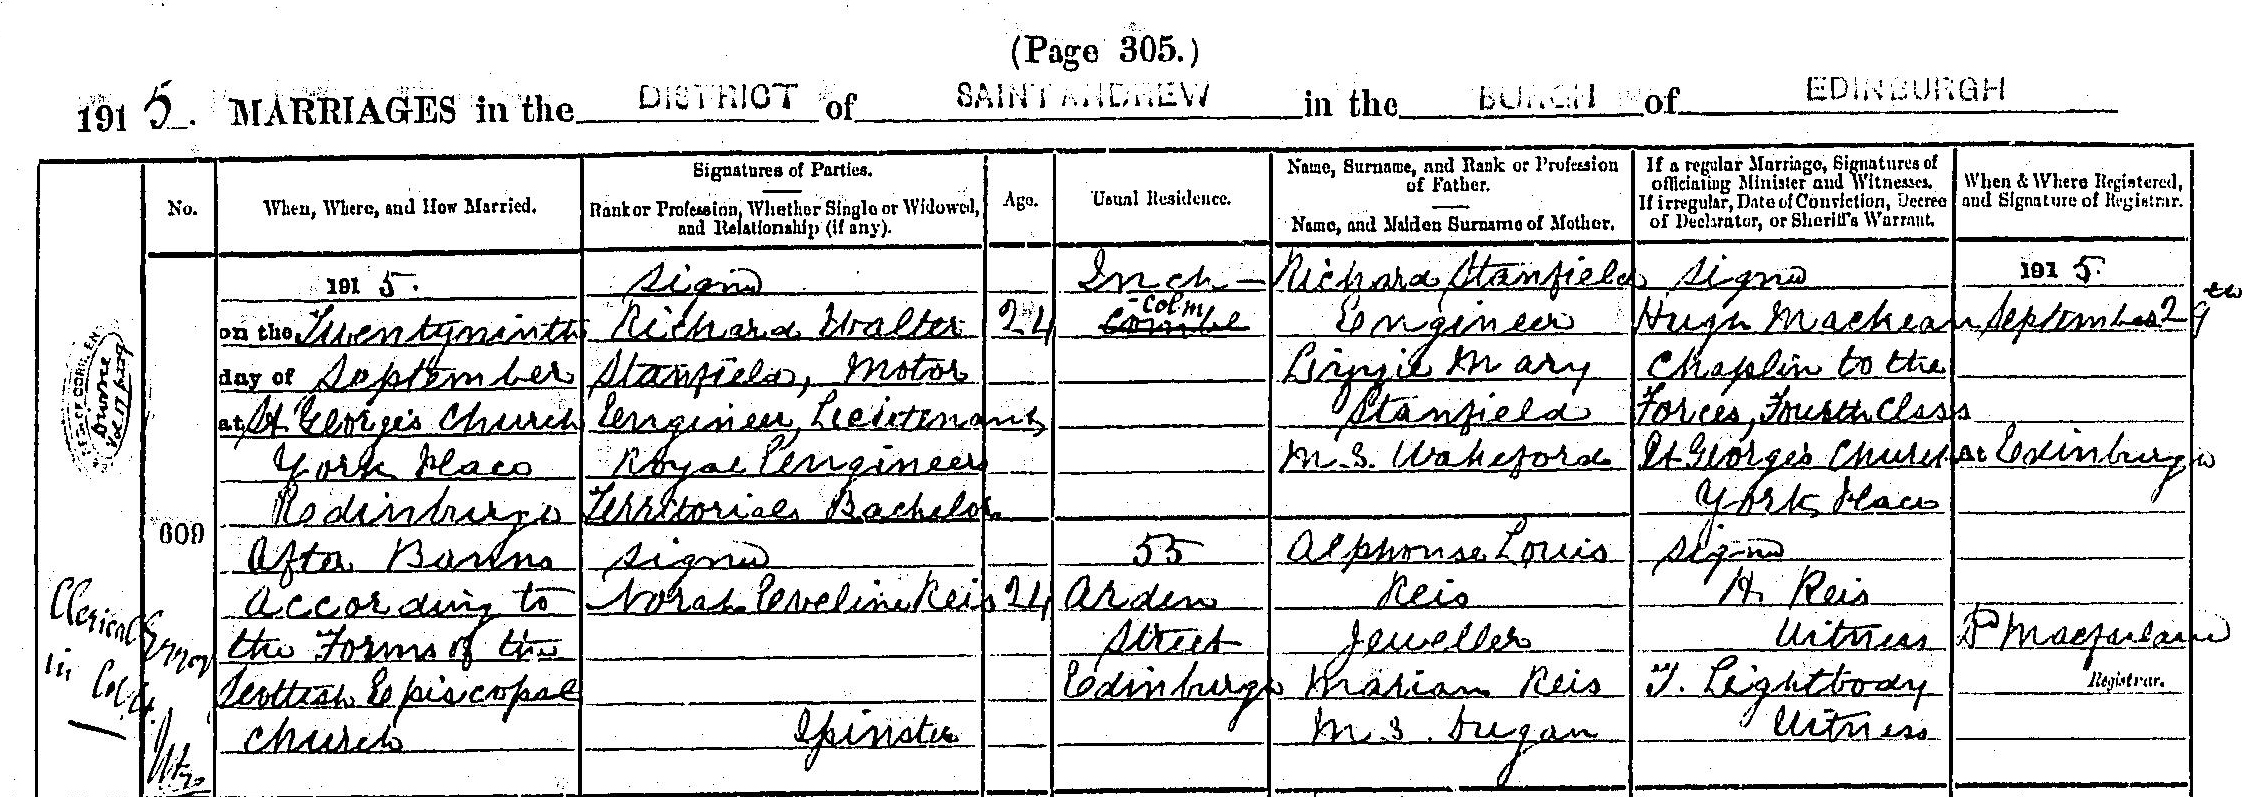 (Page 305.)
1915. MARRIAGES in the DISTRICT of SAINT ANDREW in the BURGH of EDINBURGH
No.
When, Where, and How Married.
Signatures of Parties.
Rank or Profession, Whether Single or Widowed,
and Relationship (if any).
Age.
Usual Residence.
Name, Surname, and Rank or Profession
of Father.
Name, and Maiden Surname of Mother.
If a regular Marriage, Signatures of
officiating Minister and Witnesses.
If irregular, Date of Conviction, Decree
of Declarator, or Sheriff's Warrant.
When & Where Registered,
and Signature of Registrar.
Clerical Error
in Col. 4.
609
1915.
on the Twentyninth
day of September
at St. George's Church
York Place
Edinburgh
After Banns
according to
the Forms of the
Scottish Episcopal
Church
Signed
Richard Walter
Stanfield, Motor
Engineer, Lieutenant
Royal Engineers
Territorial Bachelor
Signed
Norah Eveline Reis
Spinster
24
24
Inch-
-colm
Combe
55
Arden
Street
Edinburgh
Richard Stanfield
Engineer
Lizzie Mary
Stanfield
M.S. Wakeford
Alphonse Louis
Reis
Jeweller
Mariam Reis
M.S. Dugan
Signed
Hugh Mackean
Chaplin to the
Forces, Fourth Class
St. George's Church
York Place
Signed
H. Reis
Witness
T. Lightbody
Witness
1915.
September 29th
at Edinburgh
Dd Macfarlane
Registrar.